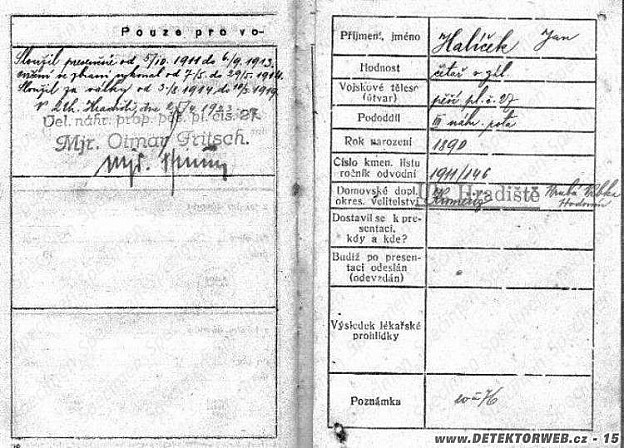 Pouze pro vo-
Sloužil presenčně od 5/10. 1911 do 6/9. 1913.
cvičení ve zbrani vykonal od 7/5 do 29/5. 1914.
Sloužil za války od 3./8 1914 do 1919.
V Uh. Hradišti, dne 1923
Vel. náhr. prap. pěš. pl. čís. 27.
Mjr. Otmar Fritsch.
mjr.
Příjmení, jméno Halíček Jan
Hodnost četař v zál.
Vojskové těleso (útvar) pěší pl. č. 27
Pododdíl III náhr. rota
Rok narození 1890
Číslo kmen. listu
ročník odvodní 1911/146
Domovské dopl.
okres. velitelství Uh. Hradiště Kroměříž Hrubá Vrbka
Hodonín
Dostavil se k pre-
sentaci,
kdy a kde?
Budiž po presen-
taci odeslán
(odevzdán)
Výsledek lékařské
prohlídky
Poznámka
www.DETEKTORWEB.cz - 15